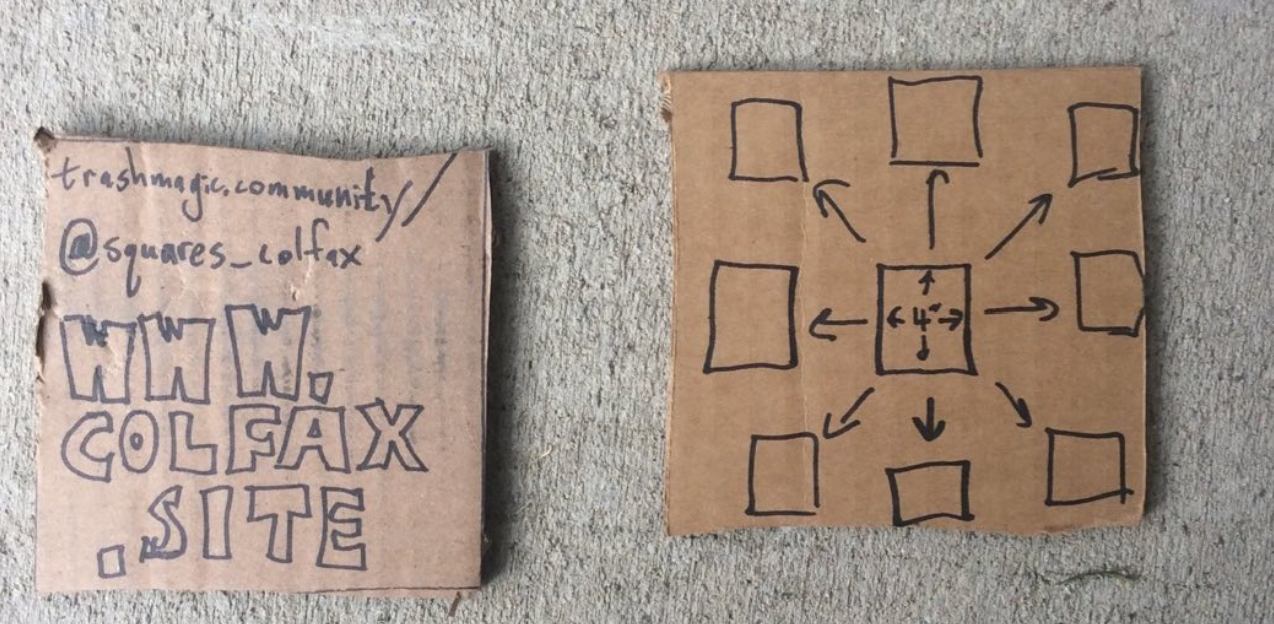 trashmagic.community/
@squares_colfax
WWW.
COLFAX
.SITE
4"